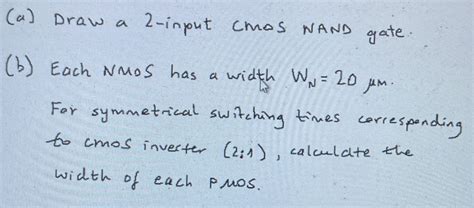 (a) Draw a 2-input CMOS NAND gate.
(b) Each NMOS has a width W_N = 20 μm.
For symmetrical switching times corresponding
to CMOS inverter (2:1), calculate the
width of each PMOS.